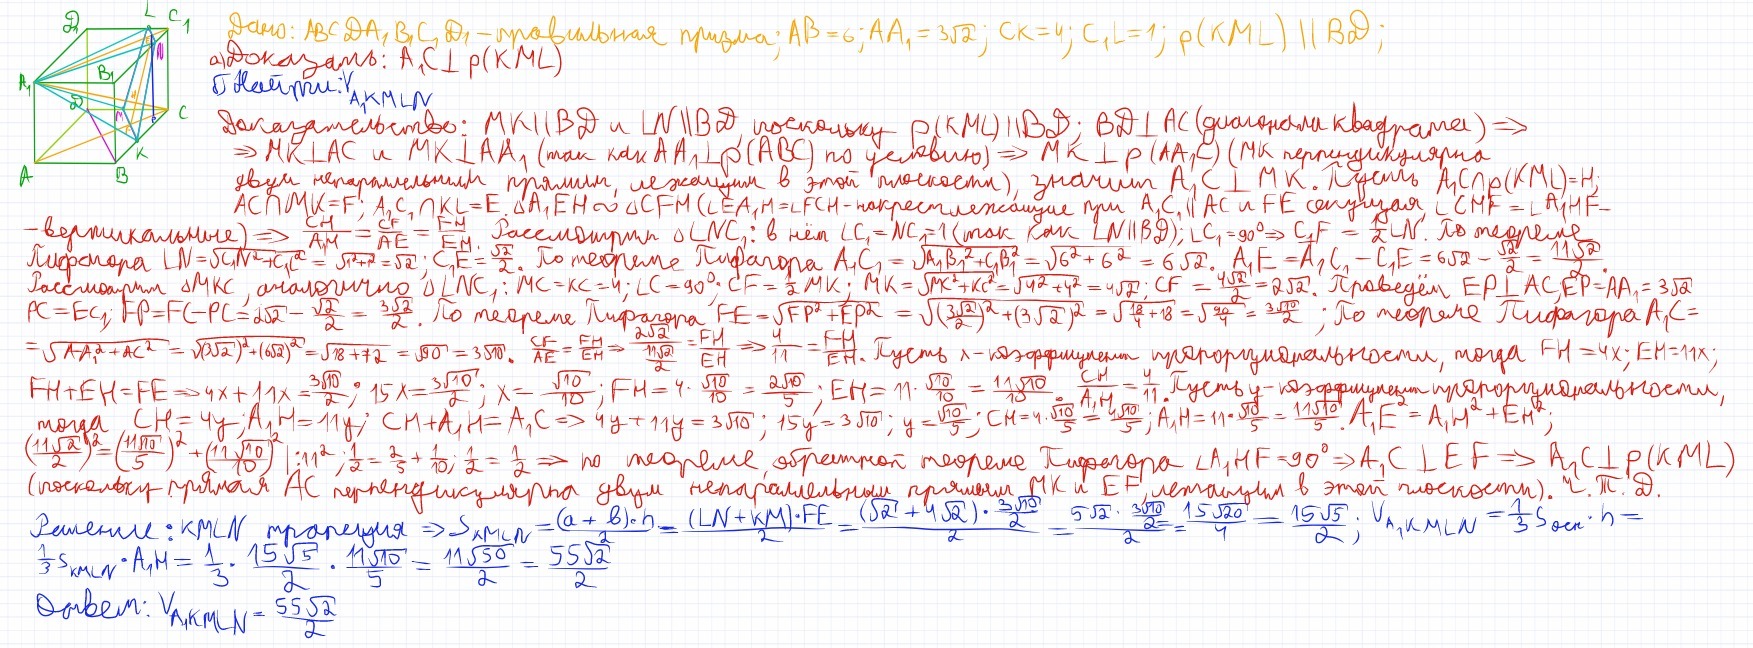 Дано: ABCDA₁B₁C₁D₁ - правильная призма; AB=6; AA₁=3√2; CK=4; C₁L=1; p(KML) || BD;
а) Доказать: A₁C⊥p(KML)
б) Найти: V_A₁KMLN
D₁ L C₁ N A₁ B₁ D M C K A B
Доказательство: MK||BD и LN||BD, поскольку p(KML)||BD; BD⊥AC (диагонали квадрата) ⇒
⇒ MK⊥AC и MK⊥AA₁ (так как AA₁⊥p(ABC) по условию) ⇒ MK⊥p(AA₁C) (MK перпендикулярна
двум непараллельным прямым, лежащим в этой плоскости), значит A₁C⊥MK. Пусть A₁C∩p(KML)=H;
AC∩MK=F; A₁C₁∩KL=E. △A₁EH∾△CFM (∠EA₁H=∠FCH-накрестлежащие при A₁C₁||AC и FE секущая, ∠CMF=∠A₁HF-
-вертикальные) ⇒ CH/A₁H = CF/AE = FH/EH. Рассмотрим △LNC₁: в нём LC₁=NC₁=1 (так как LN||BD); ∠C₁=90°⇒ C₁F = 1/2 LN. По теореме
Пифагора LN=√(C₁N²+C₁L²) = √(1²+1²) = √2; C₁E=√2/2. По теореме Пифагора A₁C₁=√(A₁B₁²+C₁B₁²) = √(6²+6²) = 6√2. A₁E=A₁C₁-C₁E=6√2-√2/2 = 11√2/2.
Рассмотрим △MKC, аналогично △LNC₁: MC=KC=4; ∠C=90°; CF=1/2 MK; MK=√(MK²+KC²)=√(4²+4²)=4√2; CF=4√2/2=2√2. Проведём EP⊥AC, EP=AA₁=3√2
PC=EC₁; FP=FC-PC=2√2-√2/2 = 3√2/2. По теореме Пифагора FE=√(FP²+EP²) = √((3√2/2)²+(3√2)²) = √(18/4+18) = √(90/4) = 3√10/2; По теореме Пифагора A₁C=
=√(AA₁²+AC²) = √((3√2)²+(6√2)²) = √(18+72) = √90 = 3√10. CF/AE = FH/EH ⇒ 2√2/(11√2/2) = FH/EH ⇒ 4/11 = FH/EH. Пусть x-коэффициент пропорциональности, тогда FH=4x; EH=11x;
FH+EH=FE ⇒ 4x+11x=3√10/2; 15x=3√10/2; x=√10/10; FH=4·√10/10=2√10/5; EH=11·√10/10=11√10/10. CH/A₁H=4/11. Пусть y-коэффициент пропорциональности,
тогда CH=4y; A₁H=11y; CH+A₁H=A₁C ⇒ 4y+11y=3√10; 15y=3√10; y=√10/5; CH=4·√10/5=4√10/5; A₁H=11·√10/5=11√10/5. A₁E²=A₁H²+EH²;
(11√2/2)²=(11√10/5)²+(11√10/10)² |:11²; 1/2=2/5+1/10; 1/2=1/2 ⇒ по теореме, обратной теореме Пифагора ∠A₁HF=90° ⇒ A₁C⊥EF ⇒ A₁C⊥p(KML)
(поскольку прямая AC перпендикулярна двум непараллельным прямым MK и EF, лежащим в этой плоскости). Ч.Т.Д.
Решение: KMLN трапеция ⇒ S_KMLN = (a+b)·h/2 = (LN+KM)·FE/2 = (√2+4√2)·3√10/2/2 = 5√2·3√10/2/2 = 15√20/4 = 15√5/2; V_A₁KMLN = 1/3 S осн·h =
1/3 S_KMLN·A₁H = 1/3 · 15√5/2 · 11√10/5 = 11√50/2 = 55√2/2
Ответ: V_A₁KMLN = 55√2/2